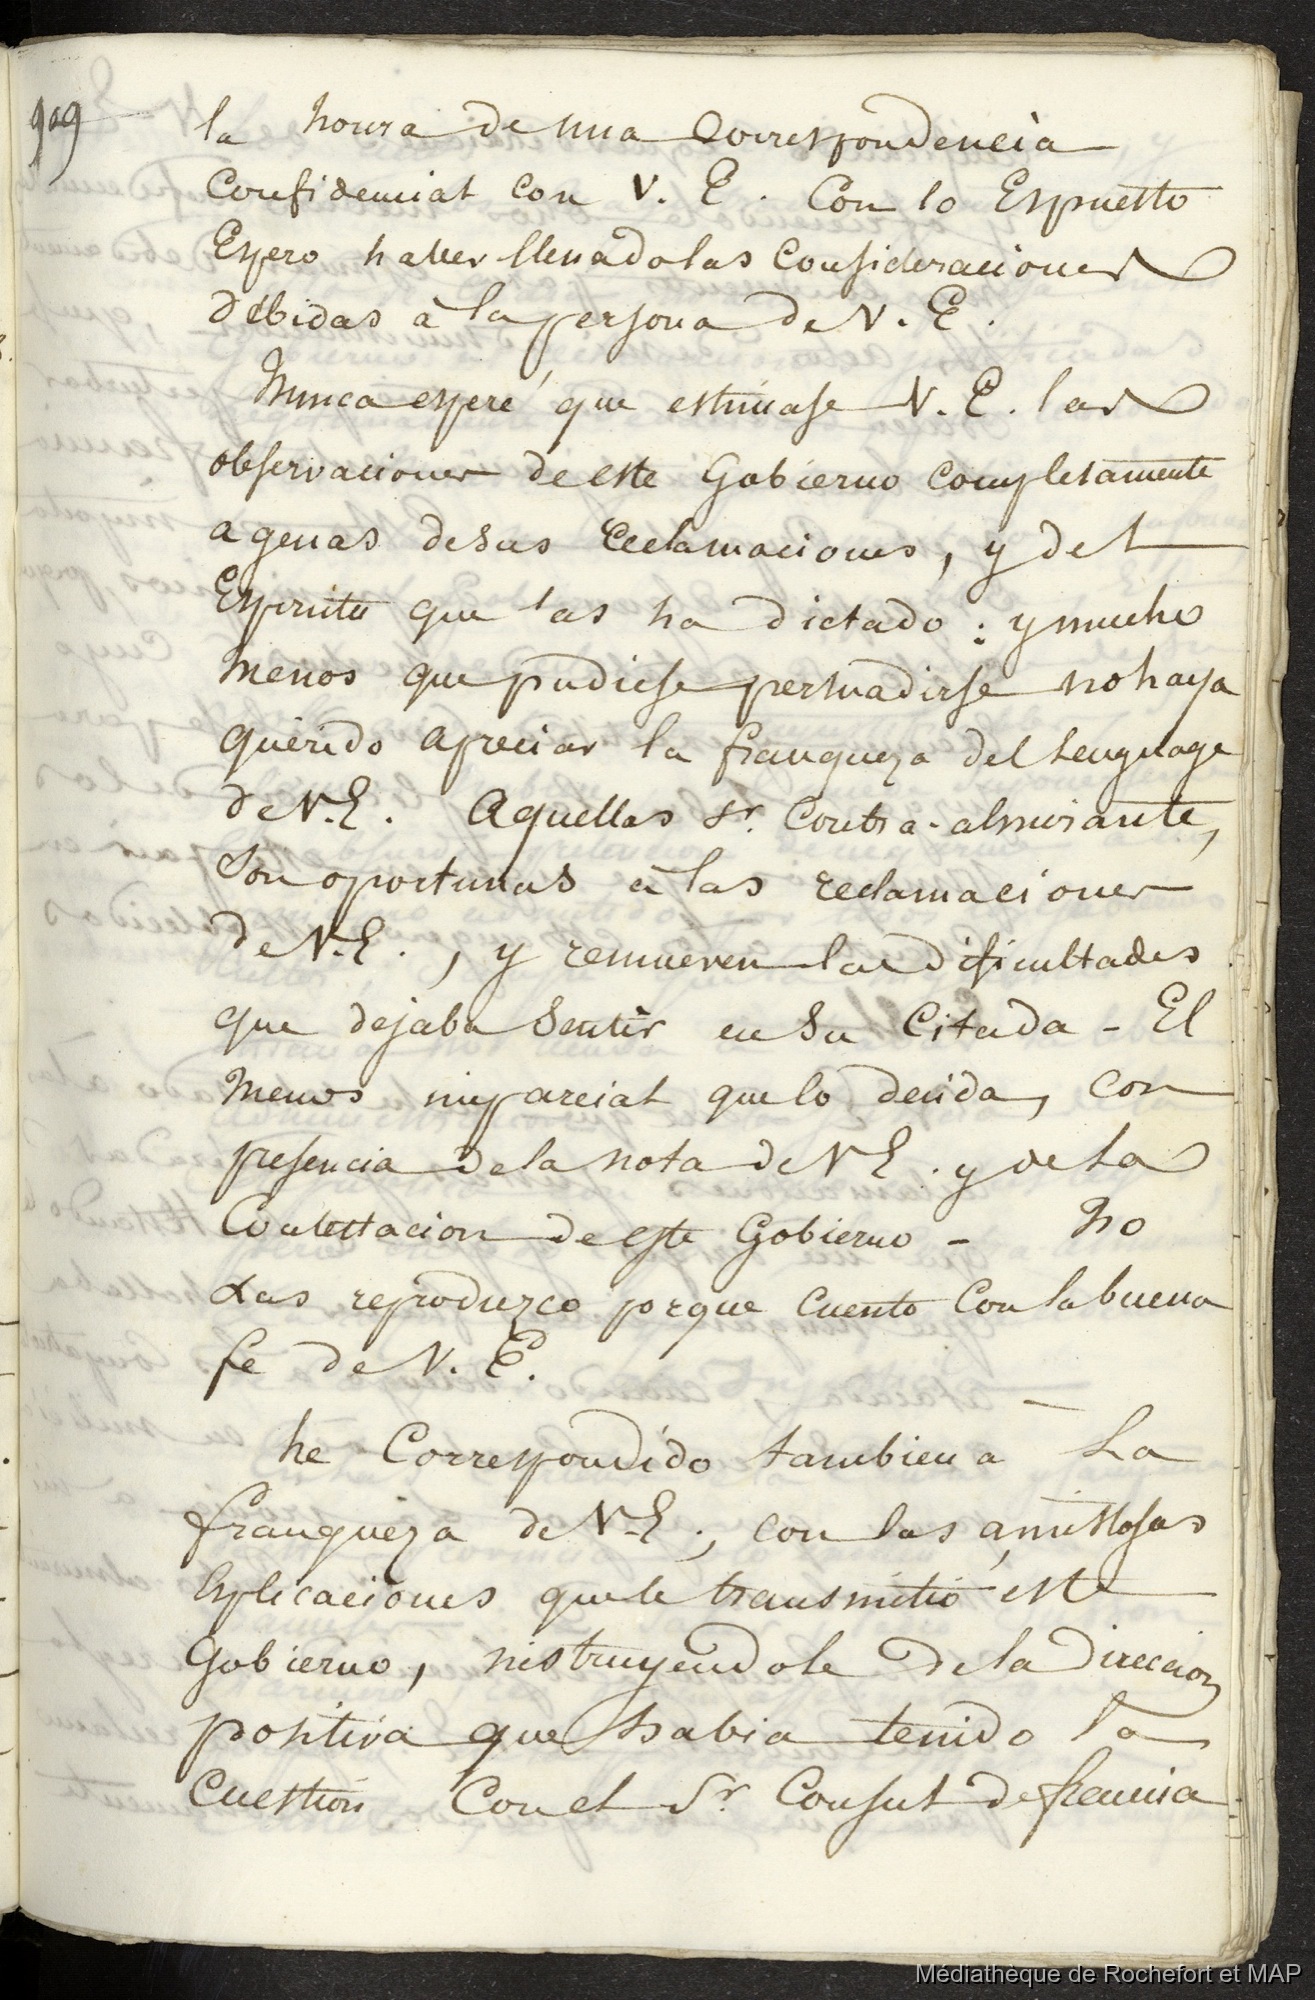 909
la honra de una Correspondencia
Confidencial con V. E. Con lo Espuesto
Espero haber llenado las Consideraciones
debidas à la persona de V. E.
Nunca esperé que estimase V. E. las
observaciones de este Gobierno completamente
agenas de sus reclamaciones, y del
Espiritu que las ha dictado: y mucho
menos que pudiese persuadirse no haya
querido apreciar la franqueza del Lenguage
de V. E. Aquellas Sr. Contra-almirante,
Son oportunas à las reclamaciones
de V. E., y remueven las dificultades
que dejaba Sentir en Su Citada - El
menos imparcial que lo decida, con
presencia de la nota de V E. y de La
Contestacion de este Gobierno - No
Las reproduzco porque cuento Con la buena
fe de V. E.
he Correspondido tambien a La
franqueza de V. E., con las amistosas
Esplicaciones que le transmitió este
Gobierno, instruyendole de la direccion
positiva que habia tenido la
Cuestion Con el Sr Consul de francia
Médiathèque de Rochefort et MAP